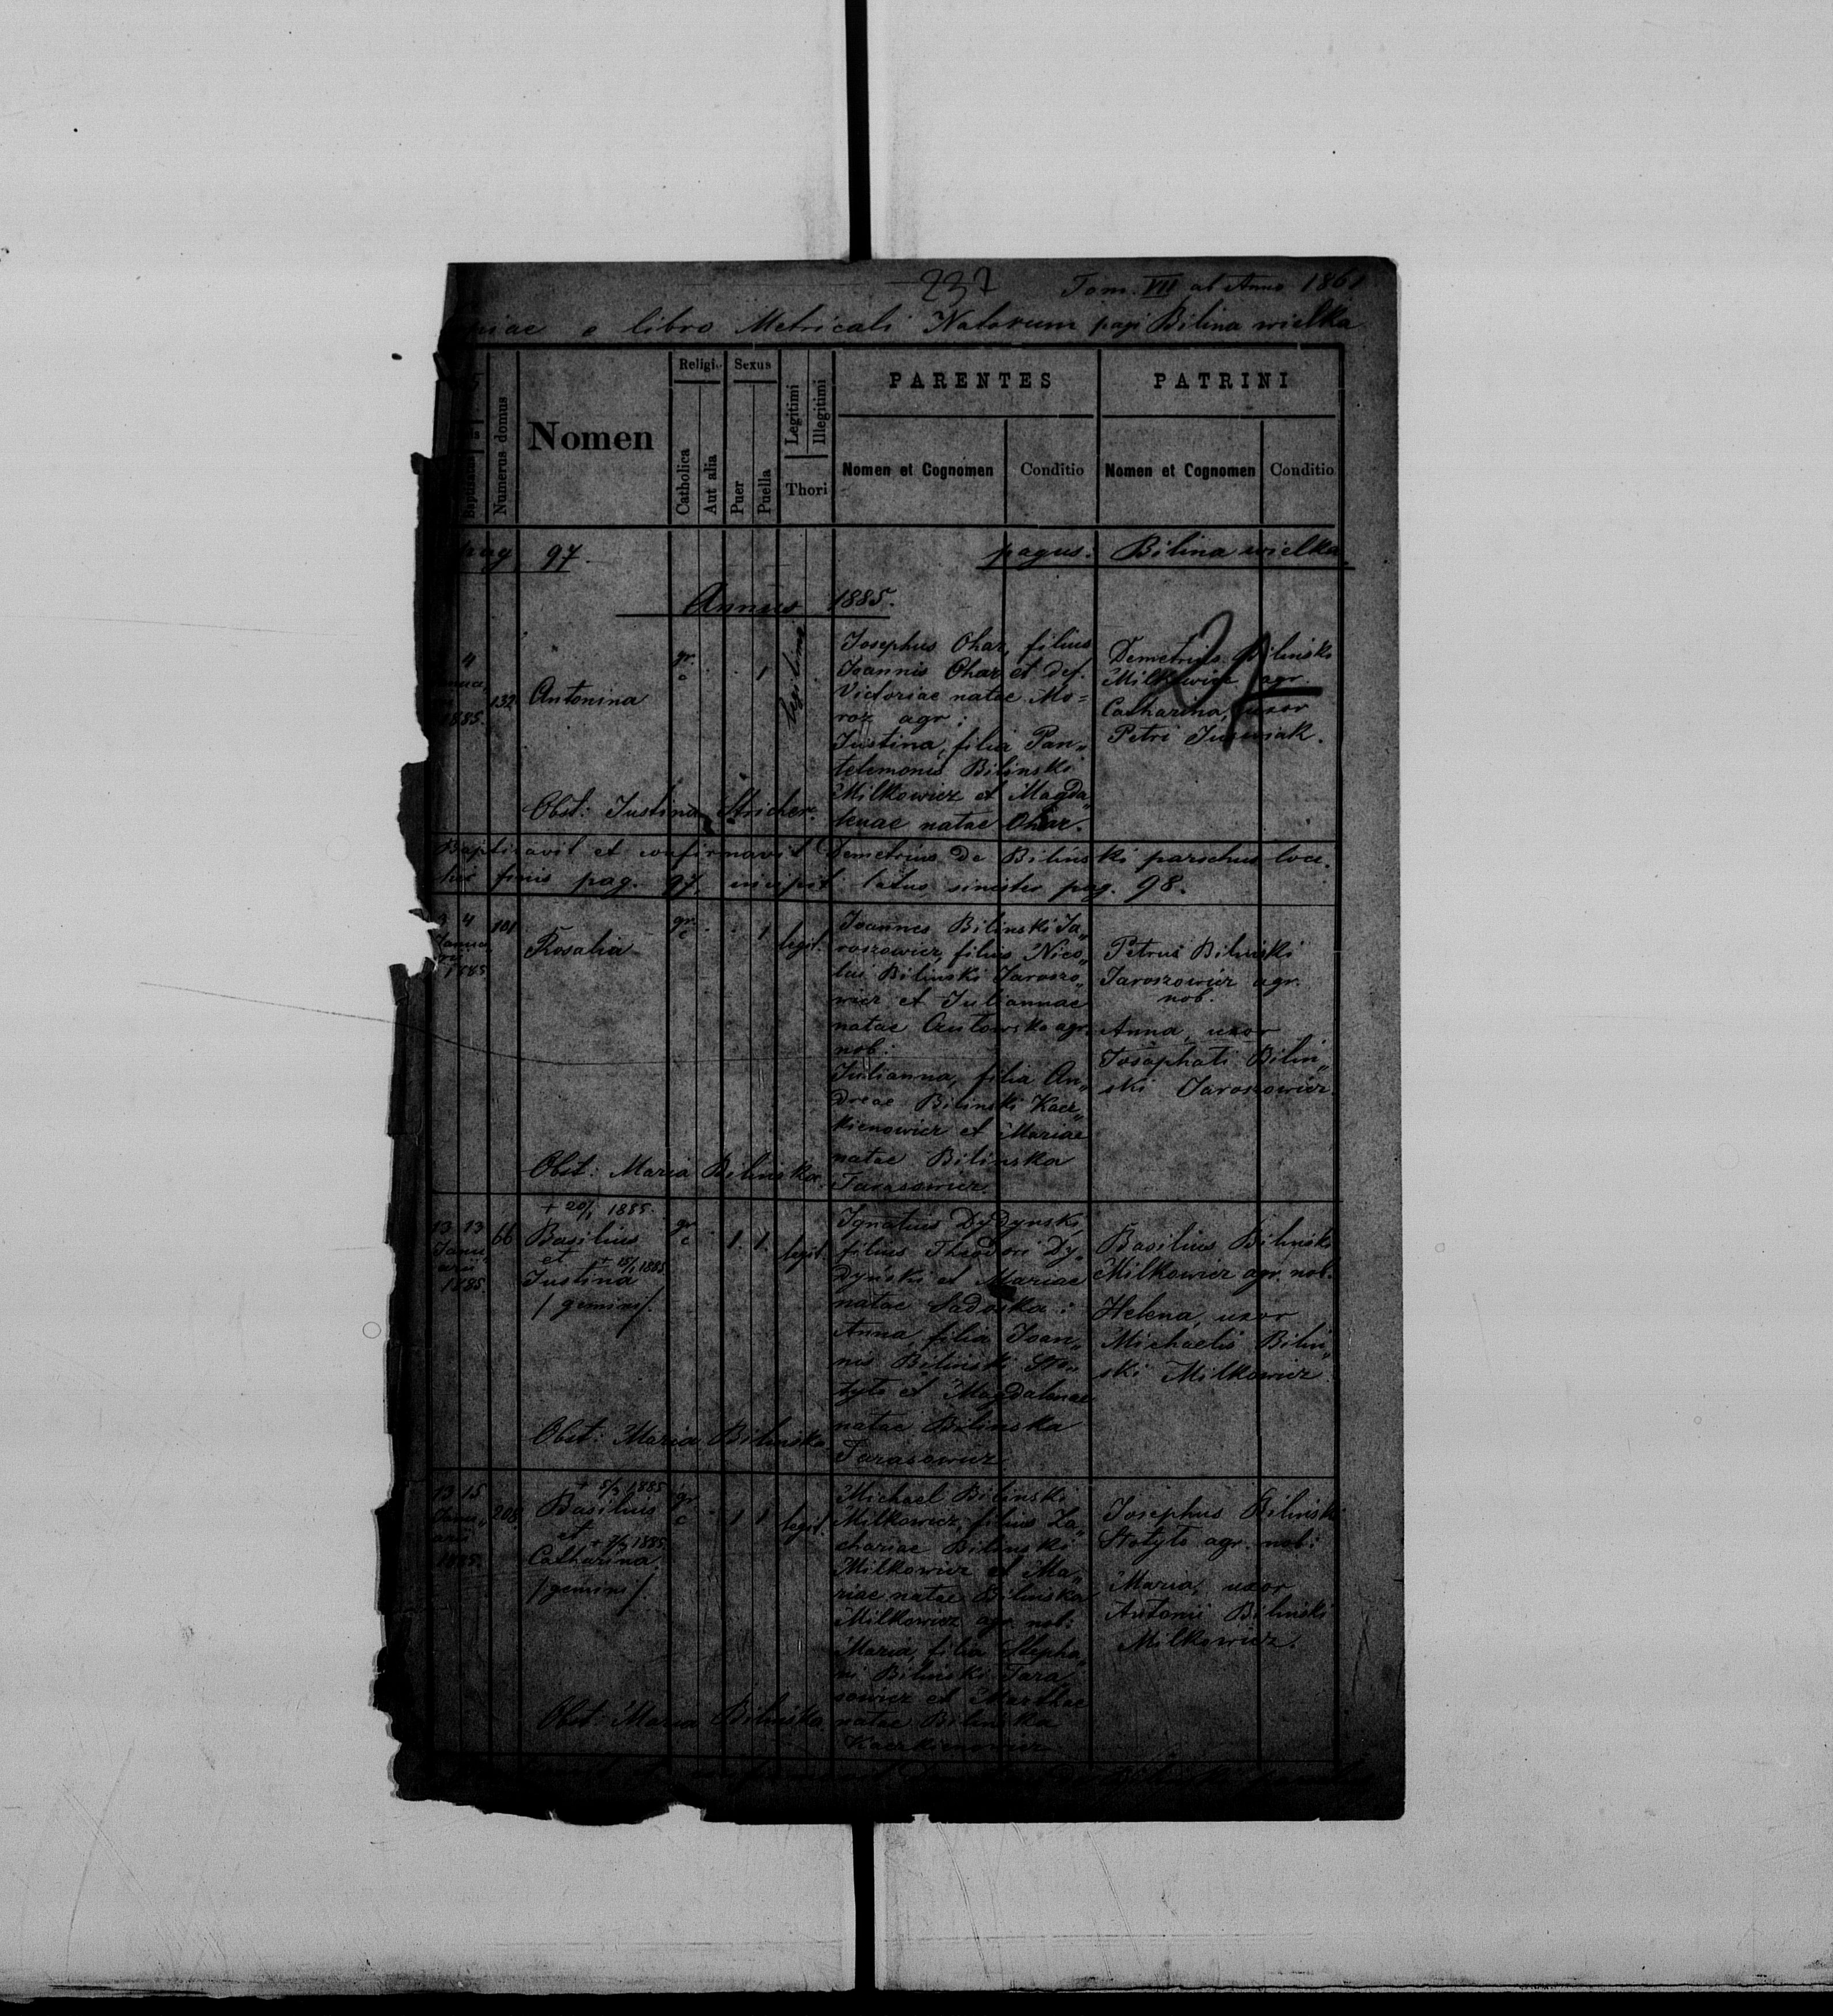 237 Tom. VII ab Anno 1861
piae e libro Metricali Natorum pagi Bilina wielka
Numerus domus
Nomen
Religio
Catholica
Aut alia
Sexus
Puer
Puella
Legitimi
Illegitimi
Thori
PARENTES
Nomen et Cognomen
Conditio
PATRINI
Nomen et Cognomen
Conditio
pag 97.
pagus: Bilina wielka
Annus 1885.
4
1885.
132
Antonina
gr.
c
1
legitimi
Josephus Ohar, filius
Joannis Ohar et def.
Victoriae natae Mo=
roz agr:
Justina, filia Pan„
telemonis Bilinski
Milkowicz et Magda„
lenae natae Ohar.
Demetrius Bilinski
Milkowicz agr.
Catharina, uxor
Petri
Obst: Justina
Baptisavit et confirmavit Demetrius de Bilinski parochus loci.
hic finis pag. 97. incipit latus sinister pag. 98.
4
Janua
1885.
101
Rosalia
gr.
c
1
legit.
Joannes Bilinski Ja„
roszowicz, filius Nico„
lai Bilinski Jaroszo„
wicz et Juliannae
natae agr.
nob:
Julianna, filia An„
dreae Bilinski Kacz„
kienowicz et Mariae
natae Bilinska
Tarasowicz.
Petrus Bilinski
Jaroszowicz agr.
nob.
Anna, uxor
Josaphati Bilin„
ski Jaroszowicz.
Obst: Maria Bilinska
+ 20/1 1885.
13 13
Janu„
arii
1885.
66
Basilius
et + 15/1 1885
Justina
/gemini/.
gr
c
1. 1.
legit.
Ignatius Dydynski,
filius Theodori Dy„
dyński et Mariae
natae Sadoska:
Anna filia Joan„
nis Bilinski Sto„
tyto et Magdalenae
natae Bilinska
Tarasowicz.
Basilius Bilinski
Milkowicz agr. nob.
Helena, uxor
Michaelis Bilin„
ski Milkowicz.
Obst: Maria Bilinska
13 15
Janu„
arii
1885.
208
Basilius
et
Catharina
/gemini/.
gr
c
1 1
legit.
Michael Bilinski
Milkowicz, filius Za„
chariae Bilinski
Milkowicz et Ma„
riae natae Bilinska
Milkowicz agr. nob:
Maria, filia Stepha„
ni Bilinski Tara„
sowicz et Marthae
natae Bilinska
Kaczkienowicz
Josephus Bilinski
Stotyto agr. nob:
Maria, uxor
Antonii Bilinski
Milkowicz.
Obst: Maria Bilinska